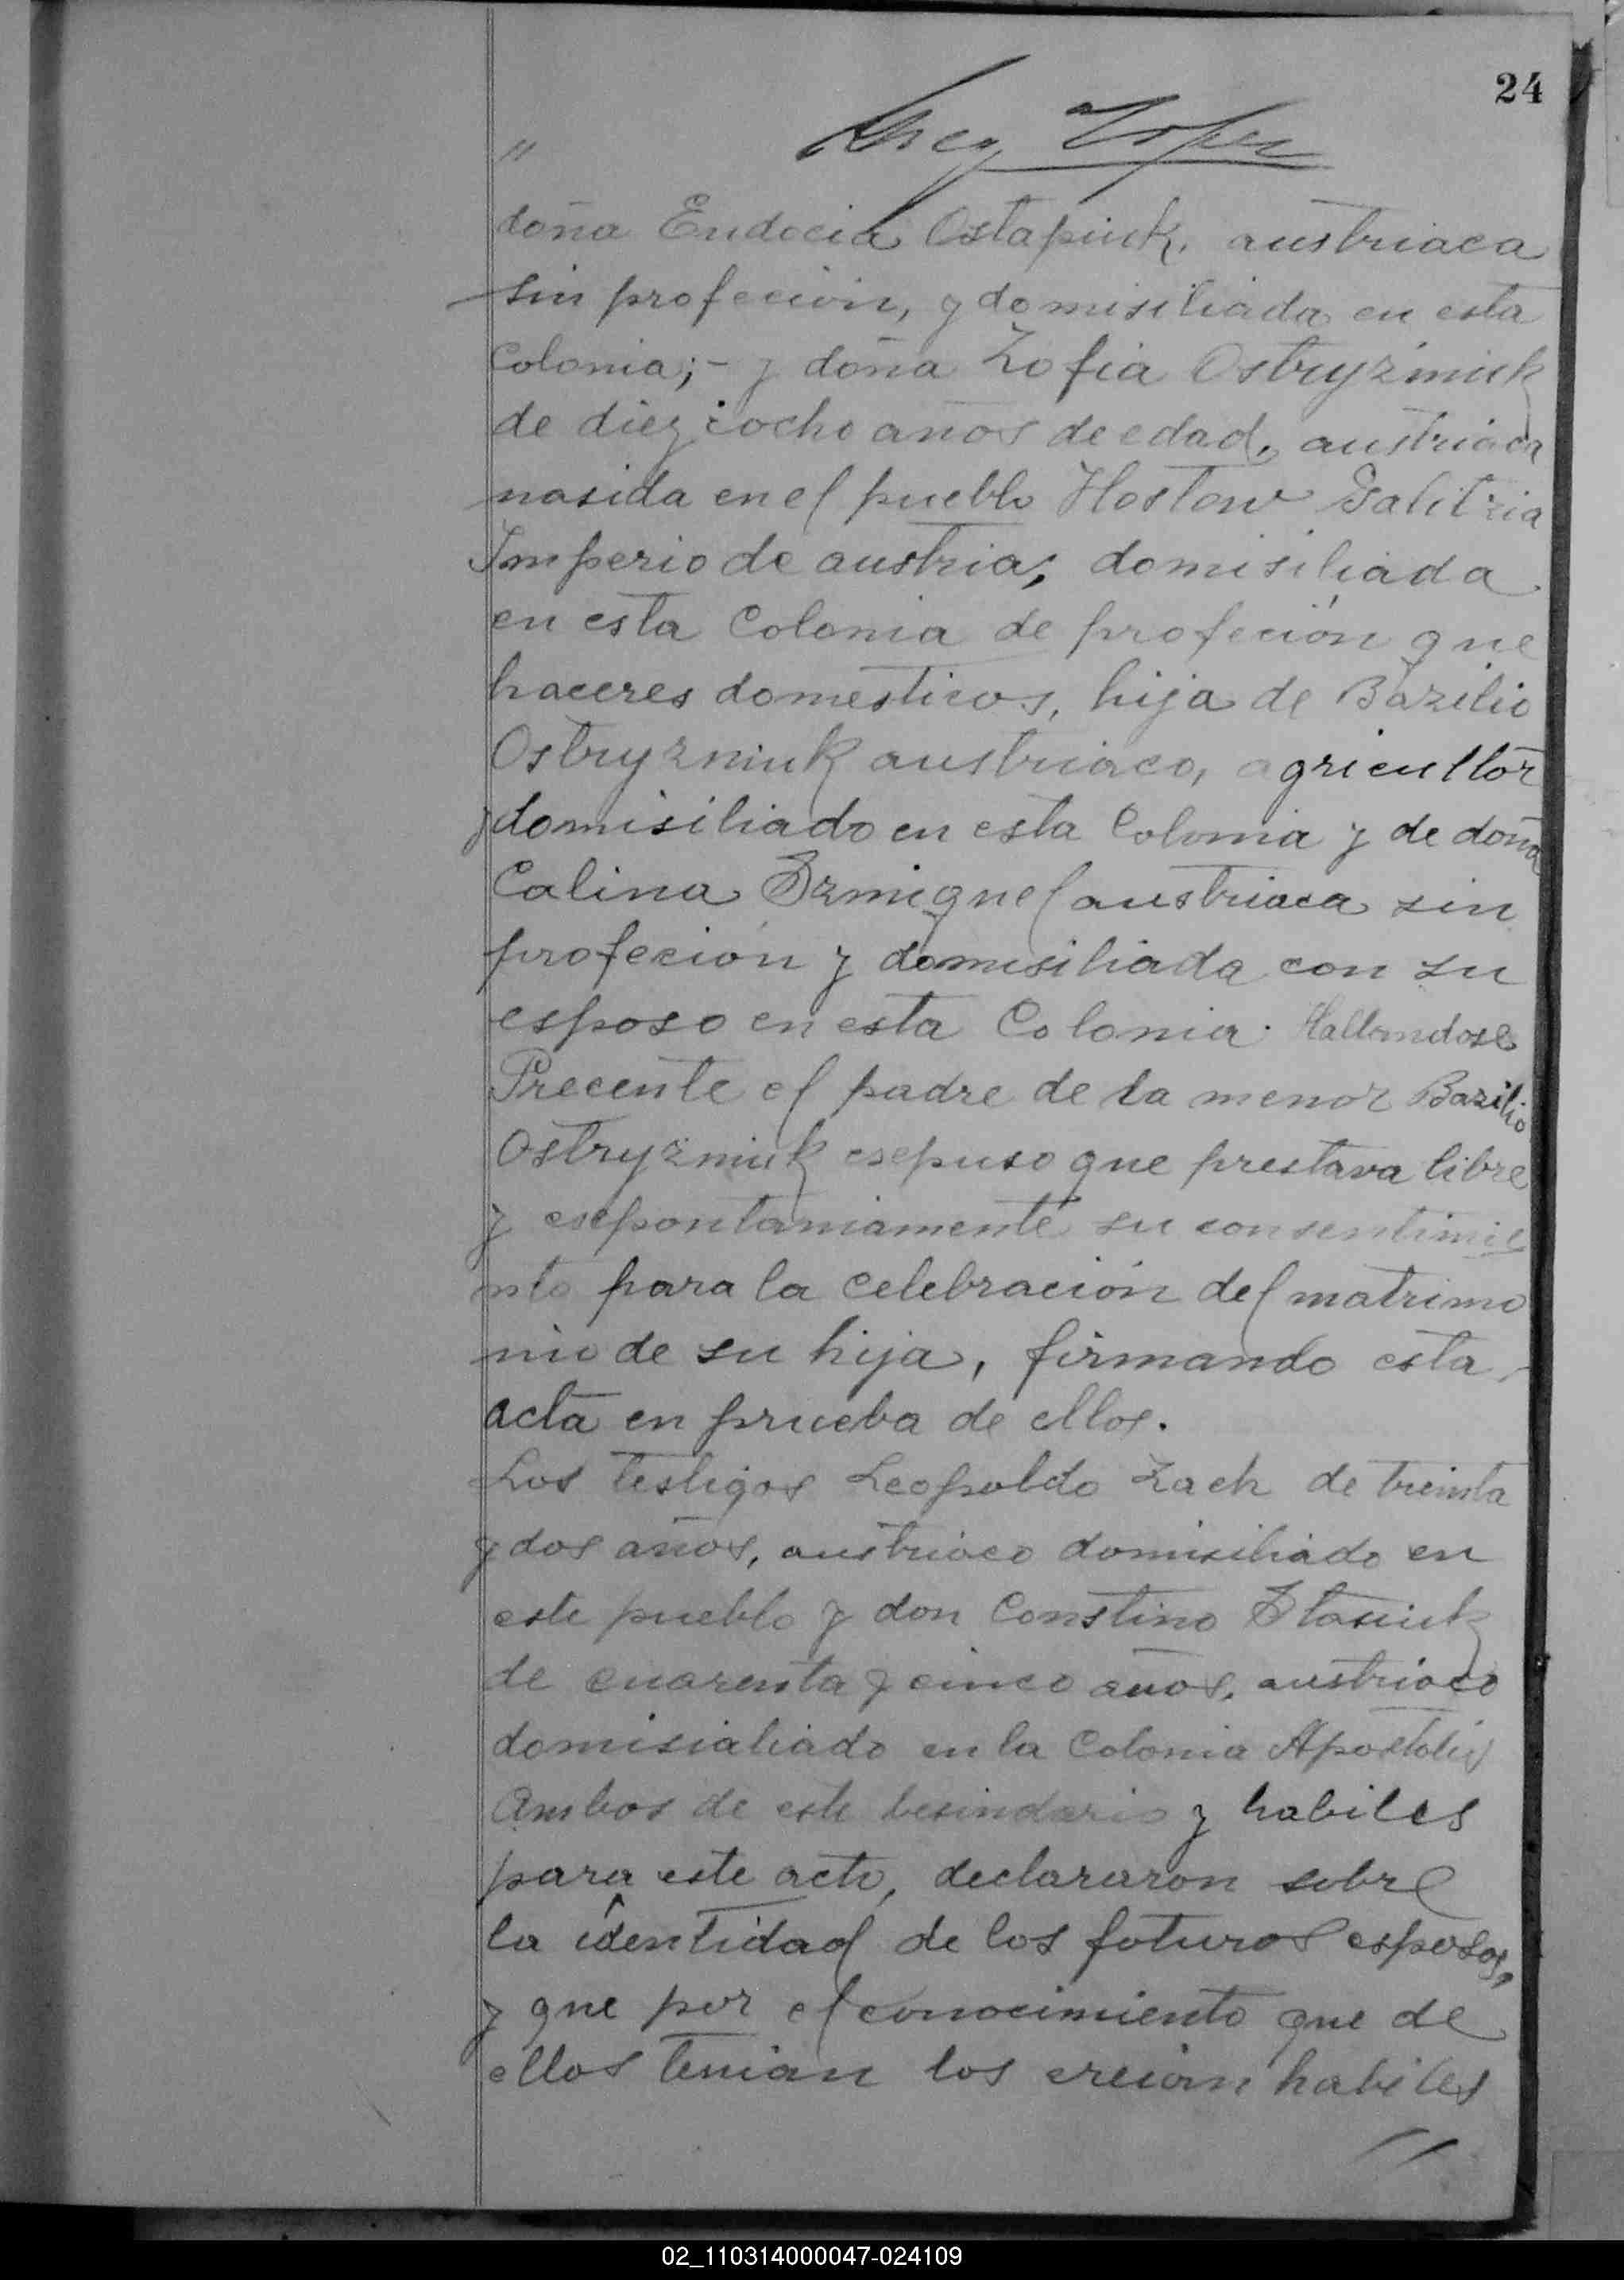 24
"
doña Eudocia Ostapiuk, austriaca
sin profecion, y domisiliada en esta
Colonia;- y doña Zofia Ostryżniuk
de diez i ocho años de edad, austriaca
nasida en el pueblo Hostow Galitzia
Imperio de austria; domisiliada
en esta Colonia de profeción que
haceres domesticos, hija de Bazilio
Ostryzniuk austriaco, agricultor
y domisiliado en esta Colonia y de doña
Calina Szmiguel austriaca sin
profeción y domisiliada con su
esposo en esta Colonia. Hallandose
Precente el padre de la menor Bazilio
Ostryżniuk esepuso que prestava libre
y esepontaniamente su consentimie
nto para la celebración del matrimo
nio de su hija, firmando esta
acta en prueba de ellos.
Los testigos Leopoldo Zach de treinta
y dos años, austriaco domisiliado en
este pueblo y don Constino Stasiuk
de cuarenta y cinco años, austriaco
domisialiado en la Colonia Apostoles
Ambos de este besindario y habiles
para este acto, declararon sobre
la identidad de los futuros esposos,
y que por el conocimiento que de
ellos tenian los creian habiles
"
02_110314000047-024109